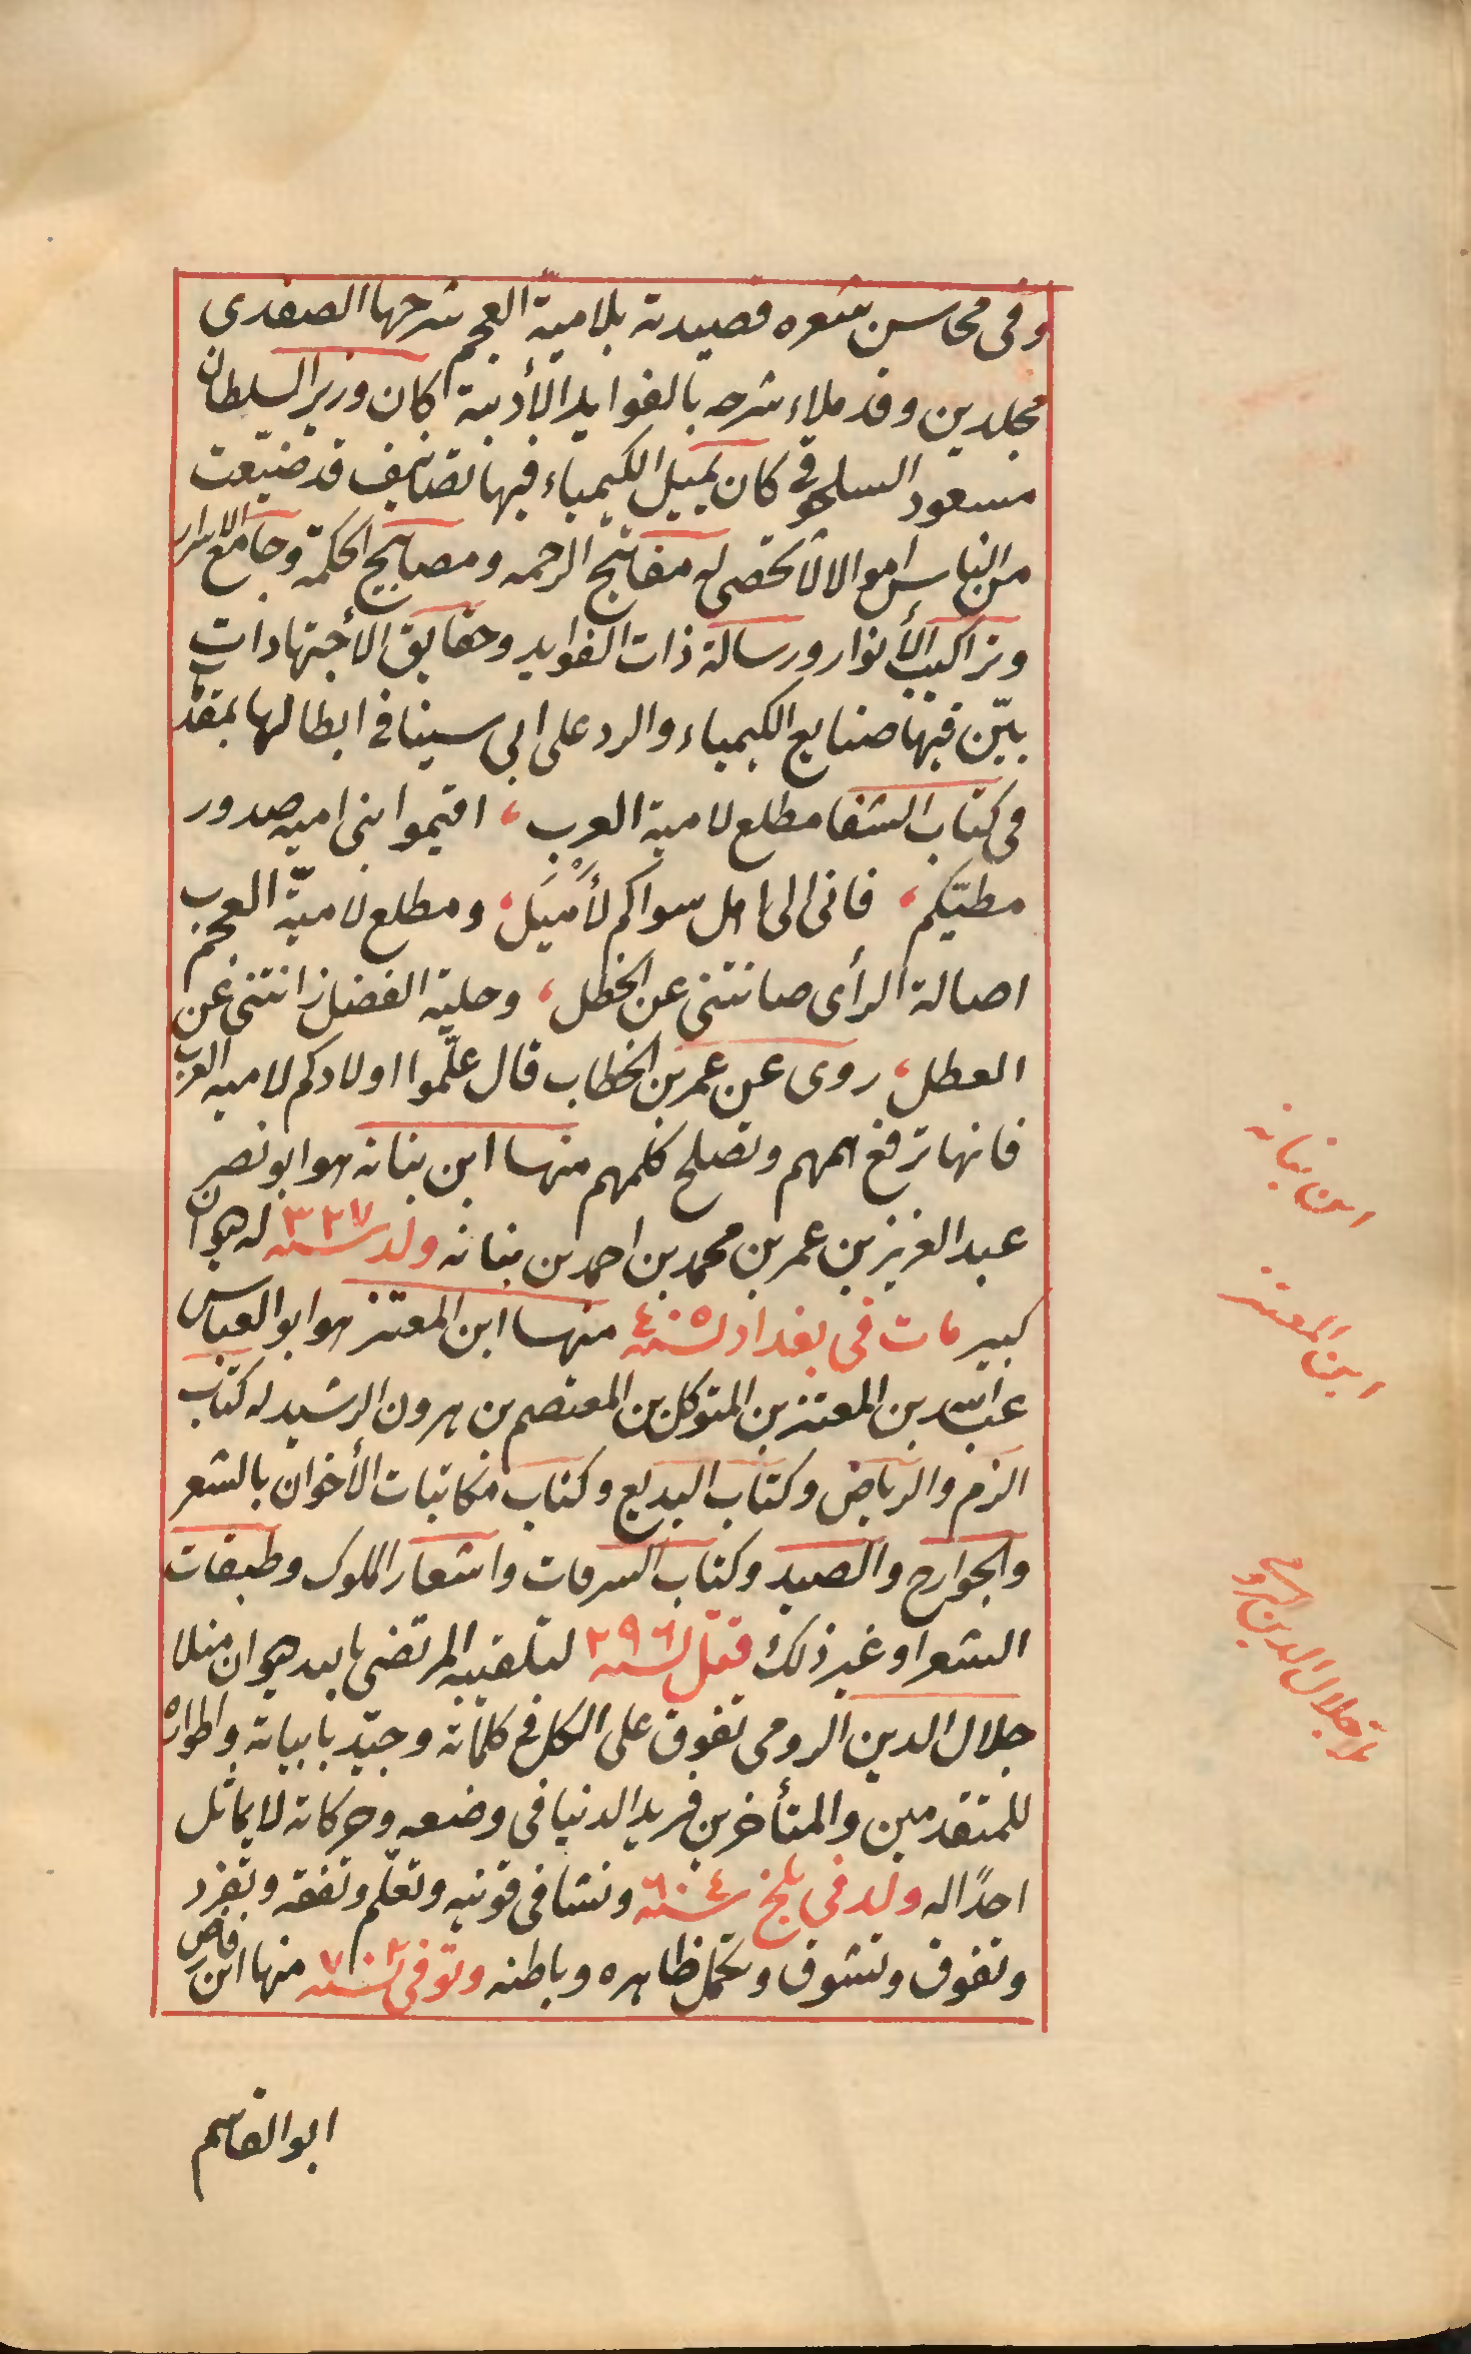 وفى محاسن شعره قصيدته بلامية العجم شرحها الصفدى
مجلدين وقد ملاء شرحه بالفوايد الأدبية كان وزير السلطان
مسعود السلجوقى كان يميل الكيمياء فيها تصانيف قد ضيّعت
من الناس اموالا لا تحصى له مفاتيح الرحمه ومصابيح الحكمة وجامع الاسرار
وتراكيب الأنوار ورسالة ذات الفوايد وحقايق الاجتهادات
بيّن فيها صنايع الكيمياء والرد على ابى سينا فى ابطالها بمقدّمات
فى كتاب الشفا مطلع لامية العرب ، اقيموا بنى اميه صدور
مطيّكم ، فانى الى اهل سواكم لأَمْيَل ، ومطلع لاميّة العجم
اصالة الرأى صانتنى عن الخطل ، وحلية الفضل زانتنى عن
العطل ، روى عن عمر بن الخطاب قال علّموا اولادكم لاميه العرب
فانها ترفع هممهم وتصلح كلمهم منها ابن نباته هو ابو نصر
عبد العزيز بن عمر بن محمد بن احمد بن نباته ولد سنة ٣٢٧ له ديوان
كبير مات فى بغداد سنة ٤٠٥ منها ابن المعتز هو ابو العباس
عبد الله بن المعتز بن المتوكل بن المعتصم بن هرون الرشيد له كتاب
الزهر والرياض وكتاب البديع وكتاب مكاتبات الأخوان بالشعر
والجوارح والصيد وكتاب السرقات واشعار الملوك وطبقات
الشعرا وغير ذلك قتل سنة ٢٩٦ لتلقيبه المرتضى بالله ديوان منلا
جلال الدين الرومى تفوق على الكل فى كلماته وجيّد بابياته واطواره
للمتقدمين والمتأخرين فريد الدنيا فى وضعه وحركاته لا يماثل
احدًا له ولد فى بلخ سنة ٦٠٤ ونشا فى قونيه وتعلّم وتفقه وتفرد
وتفوق وتشوق وتكمل ظاهره وباطنه وتوفى سنة ٧٠٢ منها ابن فارض
ابو القاسم
ابن نباته
ابن المعتز
ملا جلال الدين الرومى